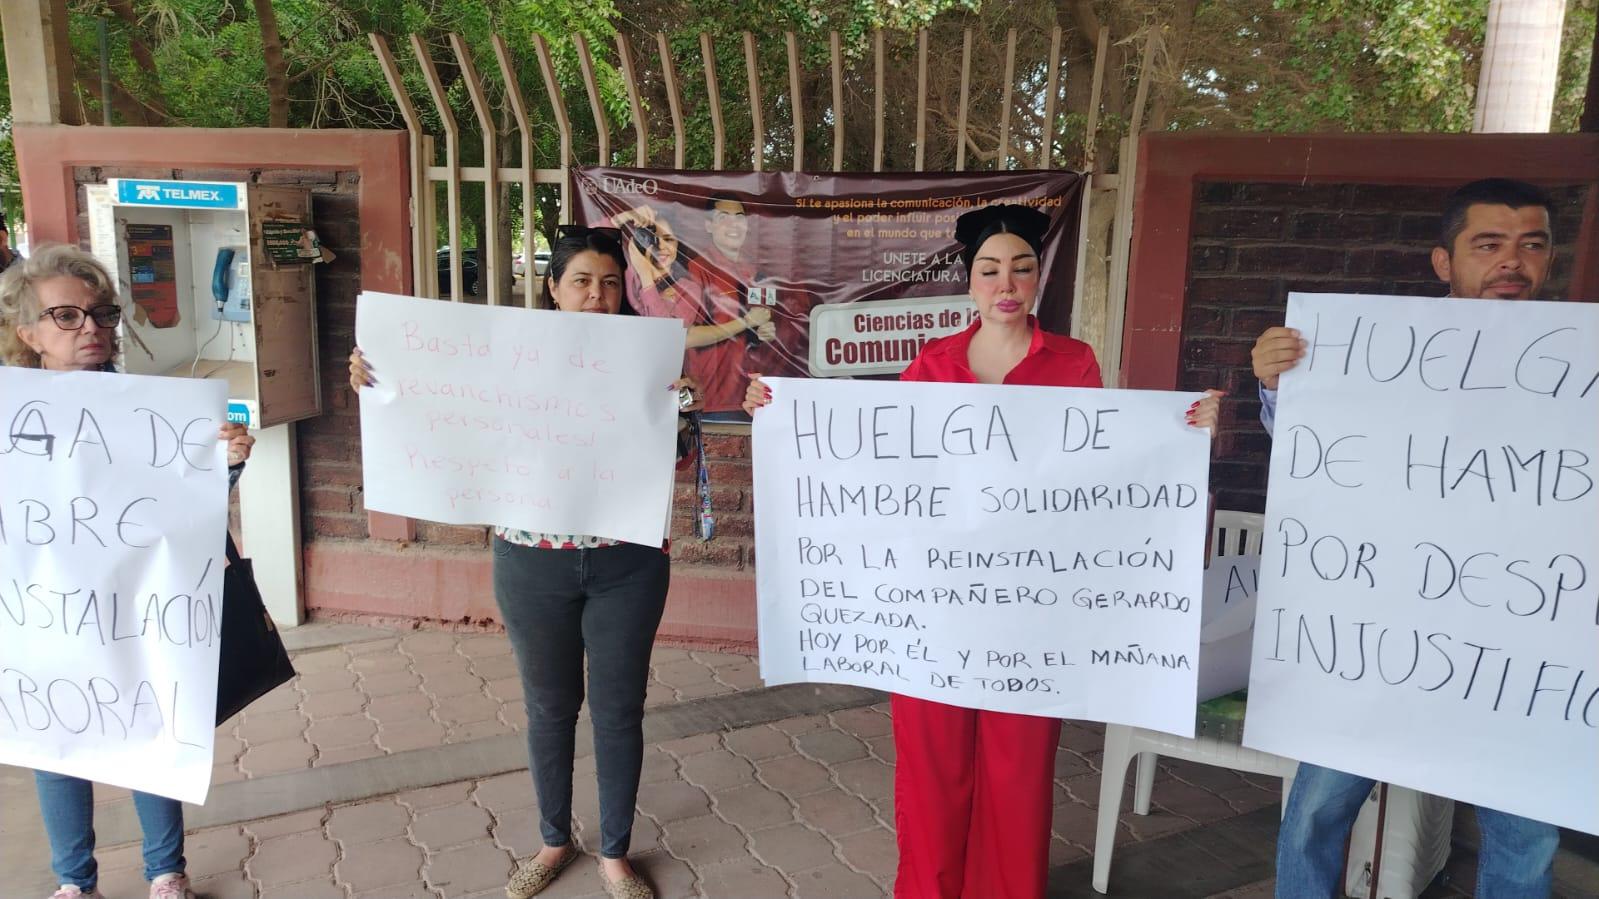 TELMEX
UAdeO
Si te apasiona la comunicación, la creatividad
y el poder influir
en el mundo que
UNETE A LA
LICENCIATURA
Ciencias de la
GA DE
BRE
NSTALACIÓN
BORAL
Basta ya de
revanchismos
personales!
Respeto a la
persona
HUELGA DE
HAMBRE SOLIDARIDAD
POR LA REINSTALACIÓN
DEL COMPAÑERO GERARDO
QUEZADA.
HOY POR ÉL Y POR EL MAÑANA
LABORAL DE TODOS.
HUELGA
DE HAMB
POR DESP
INJUSTIFIC